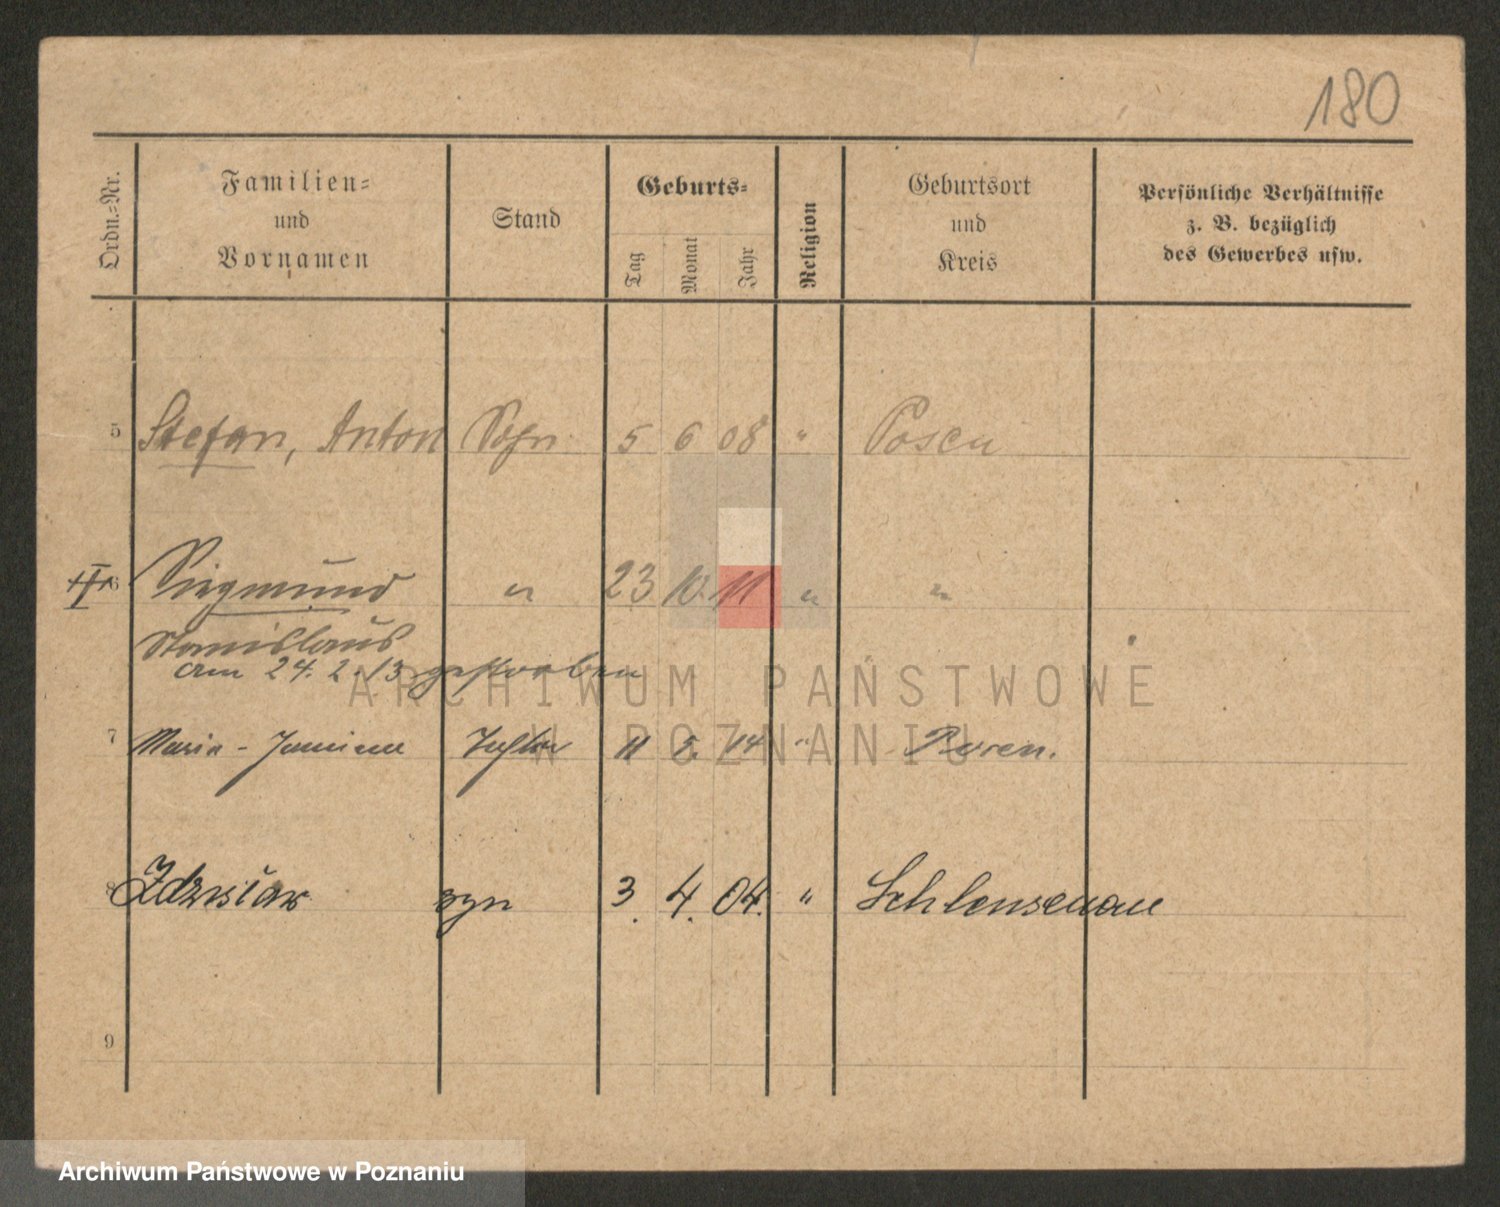 180
Ordn.-Nr.
Familien-
und
Vornamen
Stand
Geburts-
Tag
Monat
Jahr
Religion
Geburtsort
und
Kreis
Persönliche Verhältnisse
z. B. bezüglich
des Gewerbes usw.
5 Stefan, Anton Sohn 5 6 08 " Posen
6 Siegmund " 23 10. 11 " "
Stanislaus
am 24. 2. 13 gestorben
7 Maria - Janina Tochter 11 5. 14 " Posen.
8 Zdzisław syn 3. 4. 04. " Schlensenau
9
ARCHIWUM PAŃSTWOWE
W POZNANIU
Archiwum Państwowe w Poznaniu